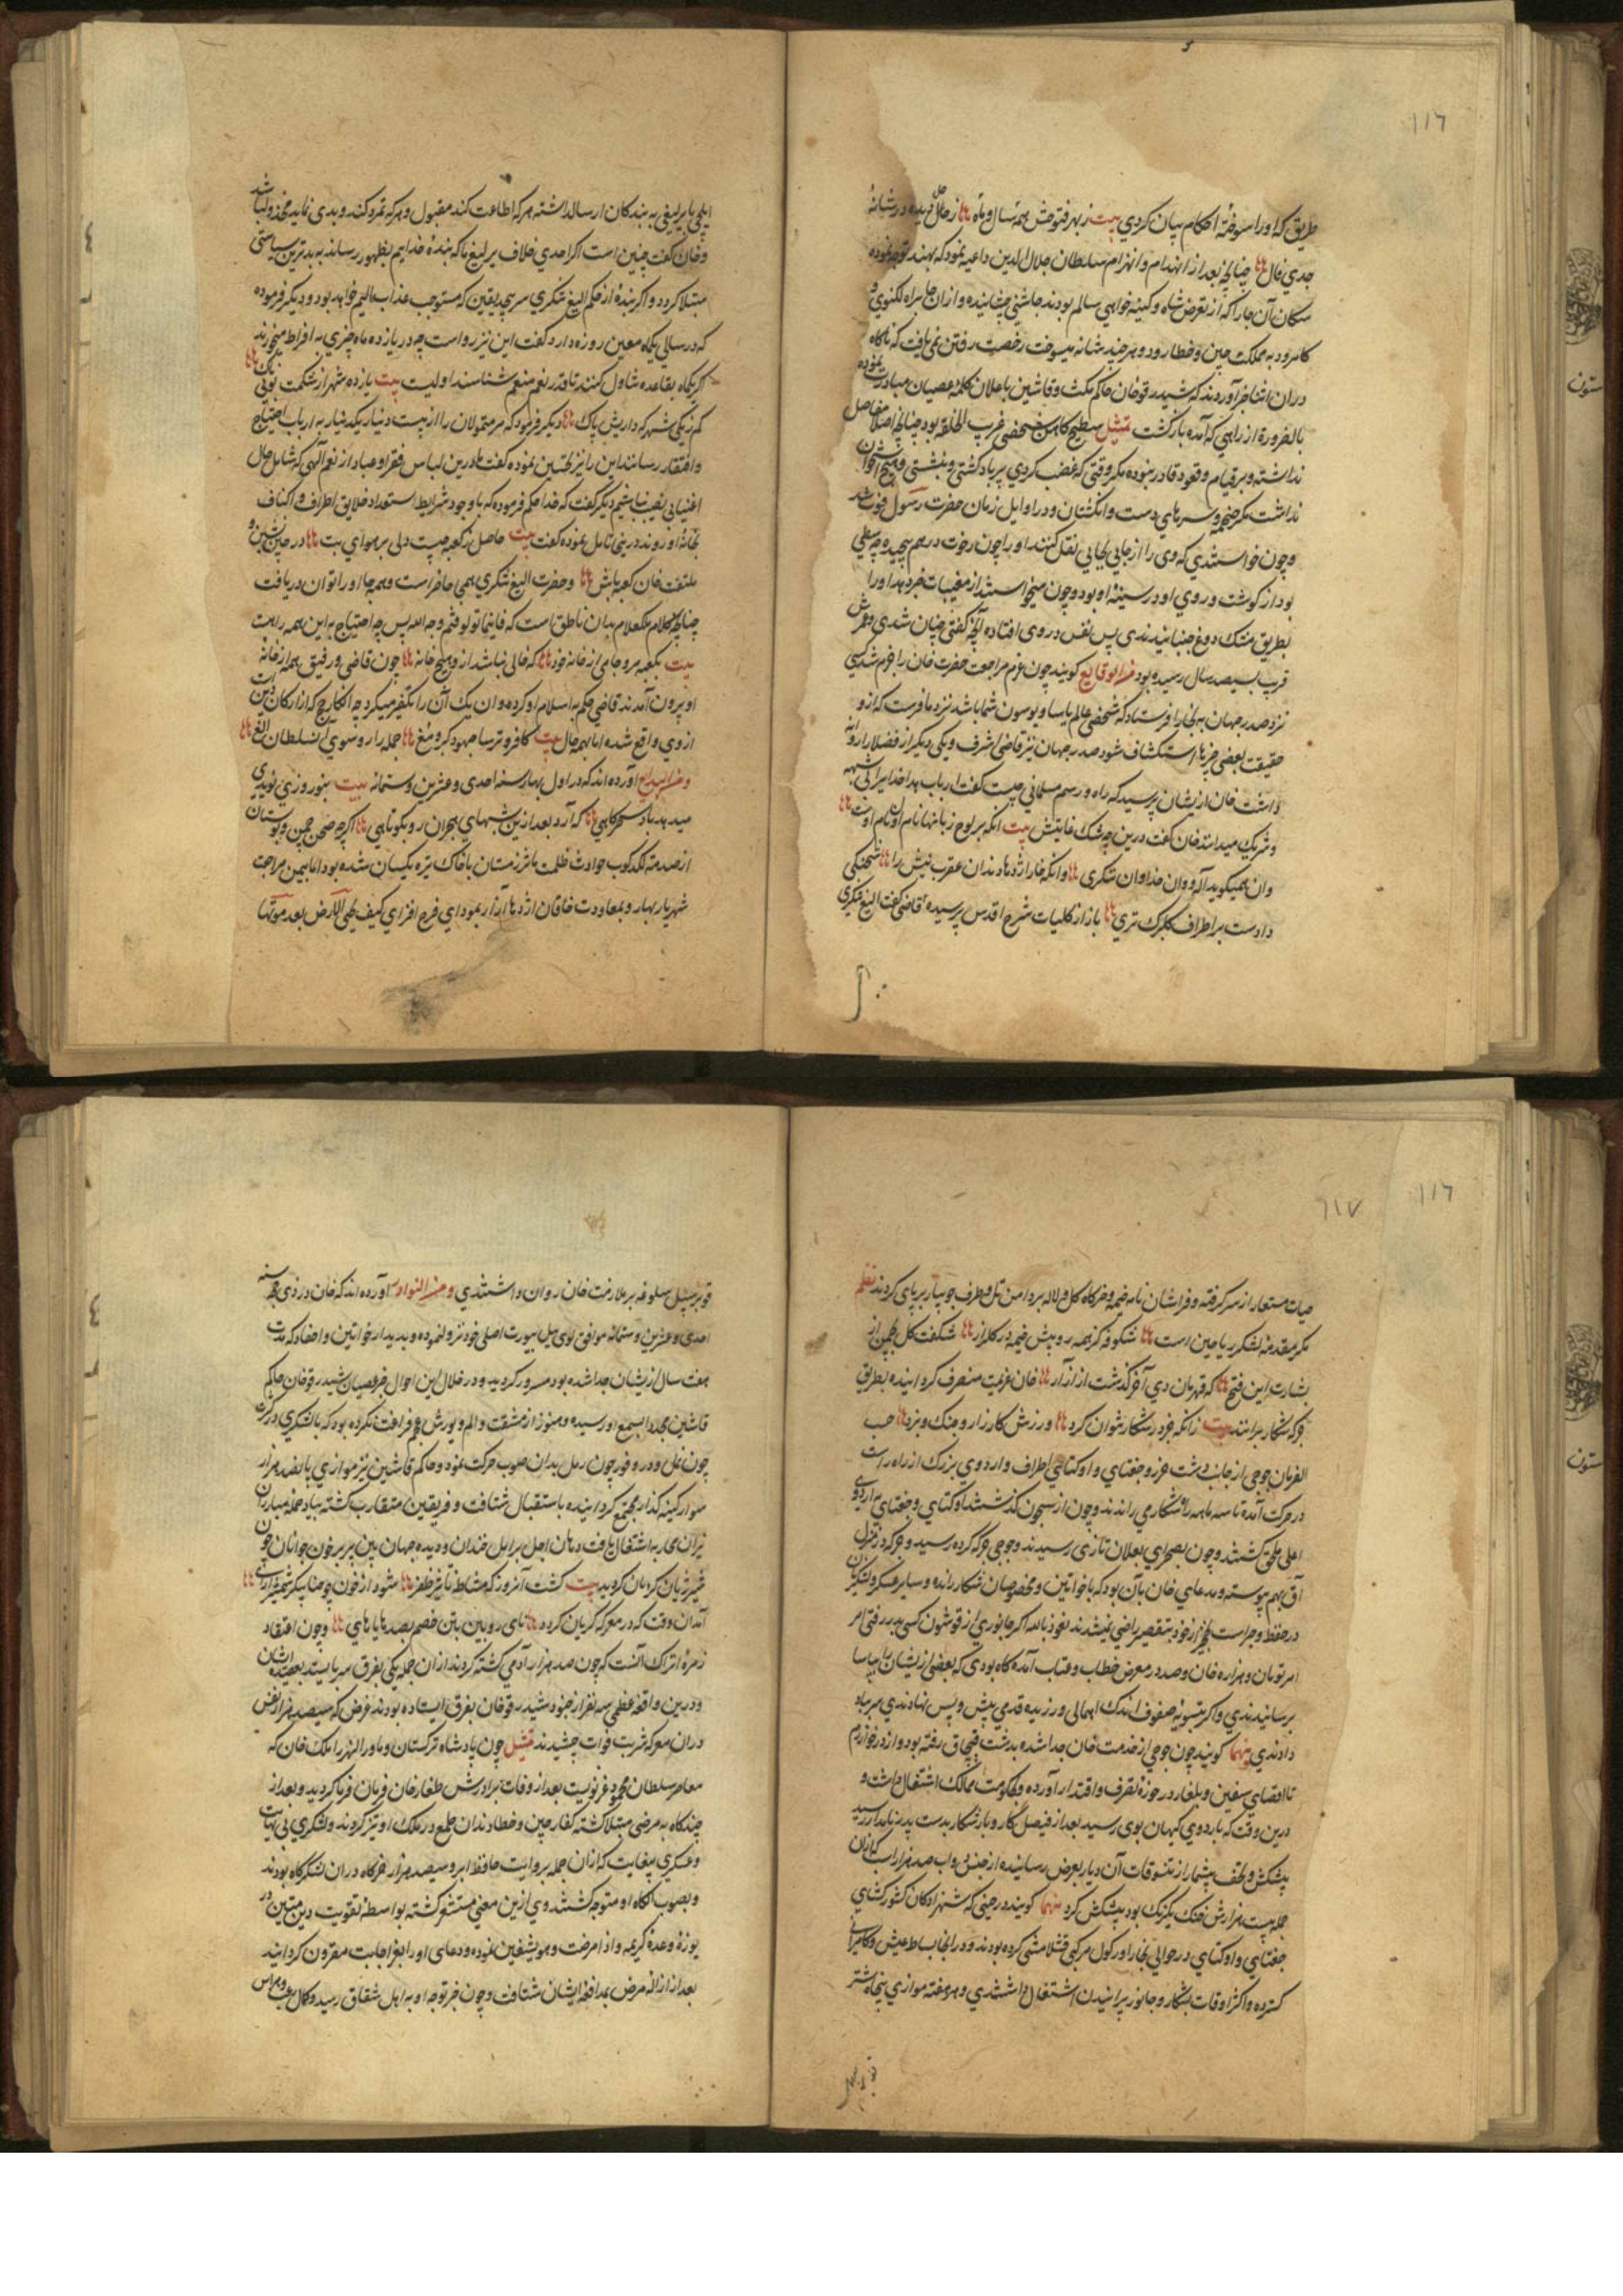 ١١٦
طریق که او را سوخته احکام بیان کردی بیت ز بهر فتوحش همه سال و ماه زحل دیده در شانهٔ
جدی فال چنانچه بعد از انهدام و انهزام سلطان جلال الدین داعیه نمود که بهند توجه نموده
سکان آن جا را که از تعرض شاه و کینه خواهی سالم بودند چاشنی چشانیده و از ان جا براه لکنوی و
کامرود به مملکت چین و خطا رود و هر چند شانه میسوخت رخصت رفتن نمی یافت که ناگاه
دران اثنا خبر آوردند که شیدرقو خان حاکم مکث و قاشین باعلان کلمه عصیان مبادرت نموده
بالضروره از راهی که آمده بازگشت تمثیل سطیح کاهن شخصی غریب الخلقه بود چنانچه اصلا مفاصل
نداشته و بر قیام و قعود قادر نبوده مگر وقتی که غضب کردی پر باد گشتی و بنشستی و هیچ استخوان
نداشت مگر جمجمه و سرهای دست و انگشتان و در اوایل زمان حضرت رسول فوت شد
و چون خواستندی که وی را از جایی بجایی نقل کنند او را چون رخوت درهم پیچیده چه سطحی
بود از گوشت و روی او در سینهٔ او بود و چون میخواستند از مغیبات خبر دهد او را
بطریق مشک دوغ جنبانیدندی پس نفس در وی افتاده آنچه گفتی چنان شدی و عمرش
قریب بسیصد سال رسیده بود من الوقایع گویند چون عزم مراجعت حضرت خان را جزم شد کسی
نزد صدر جهان به بخارا فرستاد که شخصی عالم بیاسا و یوسون شما باشد نزد ما فرست که از و
حقیقت بعضی چیزها استکشاف شود صدر جهان نیز قاضی اشرف و یکی دیگر از فضلا را روانه
داشت خان ازیشان پرسید که راه و رسم مسلمانی چیست گفت ارباب هدا خدا را بی شبهه
و شریک میدانند خان گفت درین چه شک غایتش بیت انکه بر لوح زبانها نام اول نام اوست
وان همیگوید آله و وان خدا وان تنگری وانکه خار اژدها دندان عقرب نیش را شحنگی
دادست بر اطراف گلبرگ تری باز از کلیات شرع اقدس پرسیده قاضی گفت الیغ تنگری
ایلچی با یرلیغی به بندکان ارسال داشته هر که اطاعت کند مقبول و هر که تمرد کند و بدی نماید مخذول باشد
و خان گفت چنین است اکر احدی خلاف یرلیغ ما که بنده خداییم بظهور رساند به بدترین سیاستی
مبتلا گردد و اکر بنده از حکم الیغ تنگری سر پیچد یقین که مستوجب عذاب الیم خواهد بود و دیگر فرموده
که در سالی یکماه معین روزه دارد گفت این نیز رواست چه در یازده ماه چیزی به افراط میخورند
اگر یکماه بقاعده تناول کنند تا قدر نعم منعم شناسند اولیست بیت یازده شهر از شکمت بوی ننگ
کم ز یکی شهر که داریش پاک دیگر فرمود که مر متمولان را از بیست دینار یکدینار به ارباب احتیاج
و افتقار رسانند این را نیز تحسین نموده گفت ما درین لباس فقرا و عباد از نعم آلهی که شامل حال
اغنیا بی نصیب نباشیم دیگر گفت که خدا حکم فرموده که با وجود شرایط استعداد خلایق اطراف و اکناف
بخانهٔ او روند درینی تامل نموده گفت بیت حاصل ز کعبه چیست دلی بر هوای بت در چین نشین و
ملتفت خان کعبه باش و حضرت الیغ تنگری همی حاضر است و همه جا او را توان دریافت
چنانچه کلام ملک علام بدان ناطق است که فاینما تولوا فثم وجه الله پس چه احتیاج به این همه راهست
بیت بکعبه مرو جامی از خانه خود که خالی نباشد از و هیچ خانه چون قاضی و رفیق همه از خانه
او بیرون آمدند قاضی حکم به اسلام او کرده و ان یک آن را تکفیر میکرد چه انکار حج که از ارکان دین است
از وی واقع شده اما بهر حال بیت کافر و ترسا جهود و گبر و مغ جمله را رو سوی آن سلطان الغ
و من البدایع آورده اند که در اول بهار سنه احدی و عشرین و ستمانه بیت بنوروزی نویدی
میدهد باد سحرگاهی که آرد بعد ازین شبهای هجران رو بکوتاهی اگرچه صحن چمن و بوستان
از صدمه لکدکوب حوادث ظلمت مآثر زمستان با خاک تیره یکسان شده بود اما بیمن مراجعت
شهریار بهار و بمعاودت خاقان اژدها آزار بموءدای فرح افزای کیف یحیی الارض بعد موتها
١١٦
١١٧
حیات مستعار از سر گرفته و فراشان نامیه خیمه و خرگاه گل و لاله بر دامن تل و طرف جویبار بر پای کردند نظم
مگر مقدمهٔ لشکر ریاحین است شکوفه کز همه رو پیش خیمه در گلزار شکفت گل بچمن از
بشارت این فتح که قهرمان دی آخر گذشت از آزار خان عزیمت منصرف گردانیده بطریق
جرگه شکار براندند بیت زانکه جز در شکار نتوان کرد ورزش کارزار و جنگ و نبرد حسب
الفرمان جوجی از جانب دشت خزر و جغتای و اوکتای از اطراف و اردوی بزرگ از راه راست
در حرکت آمده تا سه ماهه راه شکار می راندند و چون از سیحون گذشتند اوکتای و جغتای به اردوی
اعلی ملحق گشتند و چون بصحرای یعلان تازی رسیدند و جوجی جرگه کرده رسید و جرگه در منزل
آق بهم پیوسته و مدعای خان بآن بود که با خواتین و مخصوصان شکار رانده و سایر عسکر و لشکریان
در حفظ و حراست نخجیر از خود بتقصیر راضی نمیشدند نعوذ بالله اگر جانوری از قوشون کسی بدر رفتی امر
امر تومان و هزاره خان و صده در معرض خطاب و عتاب آمده گاه بودی که بعضی ازیشان را بیاسا
برسانیدندی و اگر بتسویهٔ صفوف اندک اهمالی ورزیده قدمی پیش و پس نهادندی سر بباد
دادندی منهما گویند چون جوجی از خدمت خان جدا شده بدشت قبچاق رفته بود و از در خوارزم
تا اقصای سقین و بلغار در حوزه تصرف و اقتدار آورده و بحکومت ممالک اشتغال داشت و
درین وقت که باردوی کیهان پوی رسید بعد از فیصل کار و بار شکار بدست پدر نامدار رسید
پیشکش و تحف بیشمار از تنسوقات آن دیار بعرض رسانیده از جنس دواب صد هزار اسب که ازان
جمله بیست هزارش خنگ یکرنگ بود پیشکش کرد منهما گویند در حینی که شهزادکان کشور گشای
جغتای و اوکتای در حوالی بخارا در کول مرکبی قشلامشی کرده بودند و در انجا بساط عیش و کامرانی
گسترده و اکثر اوقات بشکار و جانور پرانیدن اشتغال داشتندی و هر هفته موازی پنجاه شتر
قو بر سبیل سلوغه بر ملازمت خان روان داشتندی و من النوادر آورده اند که خان در ذی حجه سنه
احدی و عشرین و ستمانه موافق لوی ییل بیورت اصلی خود نزول نموده و بدیدار خواتین و احفاد که مدت
هفت سال ازیشان جدا شده بود مسرور گردید و در خلال این احوال خبر عصیان شیدرقو خان حاکم
قاشین مجددا بسمع او رسید و هنوز از مشقت و الم یورش عجم فراغت نکرده بود که با لشکری در کثرت
چون نمل و در وفور چون رمل بدان صوب حرکت نمود و حاکم قاشین نیز موازی پانصد هزار
سوار کینه گذار مجتمع گردانیده باستقبال شتافت و فریقین متقارب گشته بباد حمله مبارزان
نیران محاربه اشتعال یافت دهان اجل بر امل خندان و دیده جهان بین پر بر خون جوانان چون
شیر ژیان گریان گردید بیت گشت آنروز که مشاطه تاثیر ظفر شود از خون چو حنا پیکر شمشیر آرای
آندران وقت که در معرکه گریان گردد نای رویین بتن خصم بصد هایاهای و چون اعتقاد
زمرهٔ اتراک آنست که چون صد هزار آدمی کشته گردند ازان جمله یکی بفرق سر بایستد بعقیده ایشان
و درین واقعه عظمی سه نفر از جنود شیدرقو خان بفرق ایستاده بودند غرض که سیصد هزار نفس
دران معرکه شربت فوات چشیدند تمثیل چون پادشاه ترکستان و ماورا النهر ایلک خان که
معاصر سلطان محمود غزنویست بعد از وفات برادرش طغان خان فرمان فرما گردید و بعد از
چندگاه به مرضی مبتلا گشته کفار چین و خطا دندان طمع در ملک او تیز کردند و لشکری بی نهایت
و عسکری بیغایت که ازان جمله بروایت حافظ ابرو سیصد هزار خرگاه دران لشکرگاه بودند
و بصوب الکاه او متوجه گشتند وی ازین معنی مستشعر گشته بواسطه تقویت دین متین در
یوزهٔ وعده کریمه و اذا مرضت و هو یشفین نموده و دعای او را بعز اجابت مقرون گردانید
بعد از ازاله مرض بمدافعه ایشان شتافت و چون خبر توجه او به اهل شقاق رسید و کمال رعب و هراس